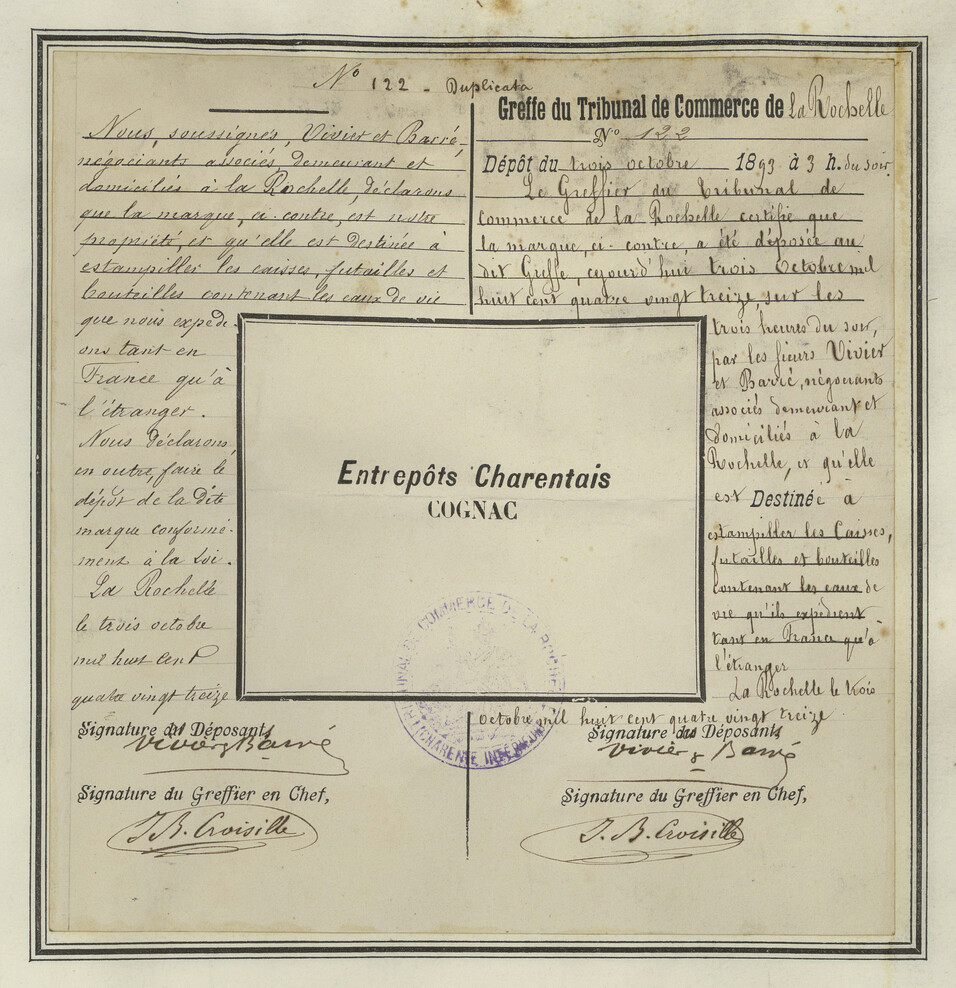 No 122 - Duplicata
Nous, soussignés, Vivier et Barré,
négociants associés demeurant et
domiciliés à la Rochelle, déclarons
que la marque, ci-contre, est notre
propriété, et qu'elle est destinée à
estampiller les caisses, futailles et
bouteilles contenant les eaux de vie
que nous expédi-
ons tant en
France qu'à
l'étranger.
Nous déclarons,
en outre, faire le
dépôt de la dite
marque conformé-
ment à la Loi.
La Rochelle
le trois octobre
mil huit cent
quatre vingt treize
Signature des Déposants
Vivier & Barré
Signature du Greffier en Chef,
J. B. Croisille
Greffe du Tribunal de Commerce de La Rochelle
No 122
Dépôt du trois octobre 1893 à 3 h. du soir.
Le Greffier du Tribunal de
commerce de la Rochelle certifie que
la marque, ci-contre, a été déposée au
dit Greffe, cejourd'hui trois Octobre mil
huit cent quatre vingt treize, sur les
trois heures du soir,
par les sieurs Vivier
et Barré, négociants
associés demeurant et
domiciliés à la
Rochelle, et qu'elle
est Destinée à
estampiller les Caisses,
futailles et bouteilles
contenant les eaux de
vie qu'ils expédient
tant en France qu'à
l'étranger
La Rochelle le trois
octobre mil huit cent quatre vingt treize
Signature des Déposants
Vivier & Barré
Signature du Greffier en Chef,
J. B. Croisille
Entrepôts Charentais
COGNAC
TRIBUNAL DE COMMERCE DE LA ROCHELLE
(CHARENTE INFÉRIEURE)